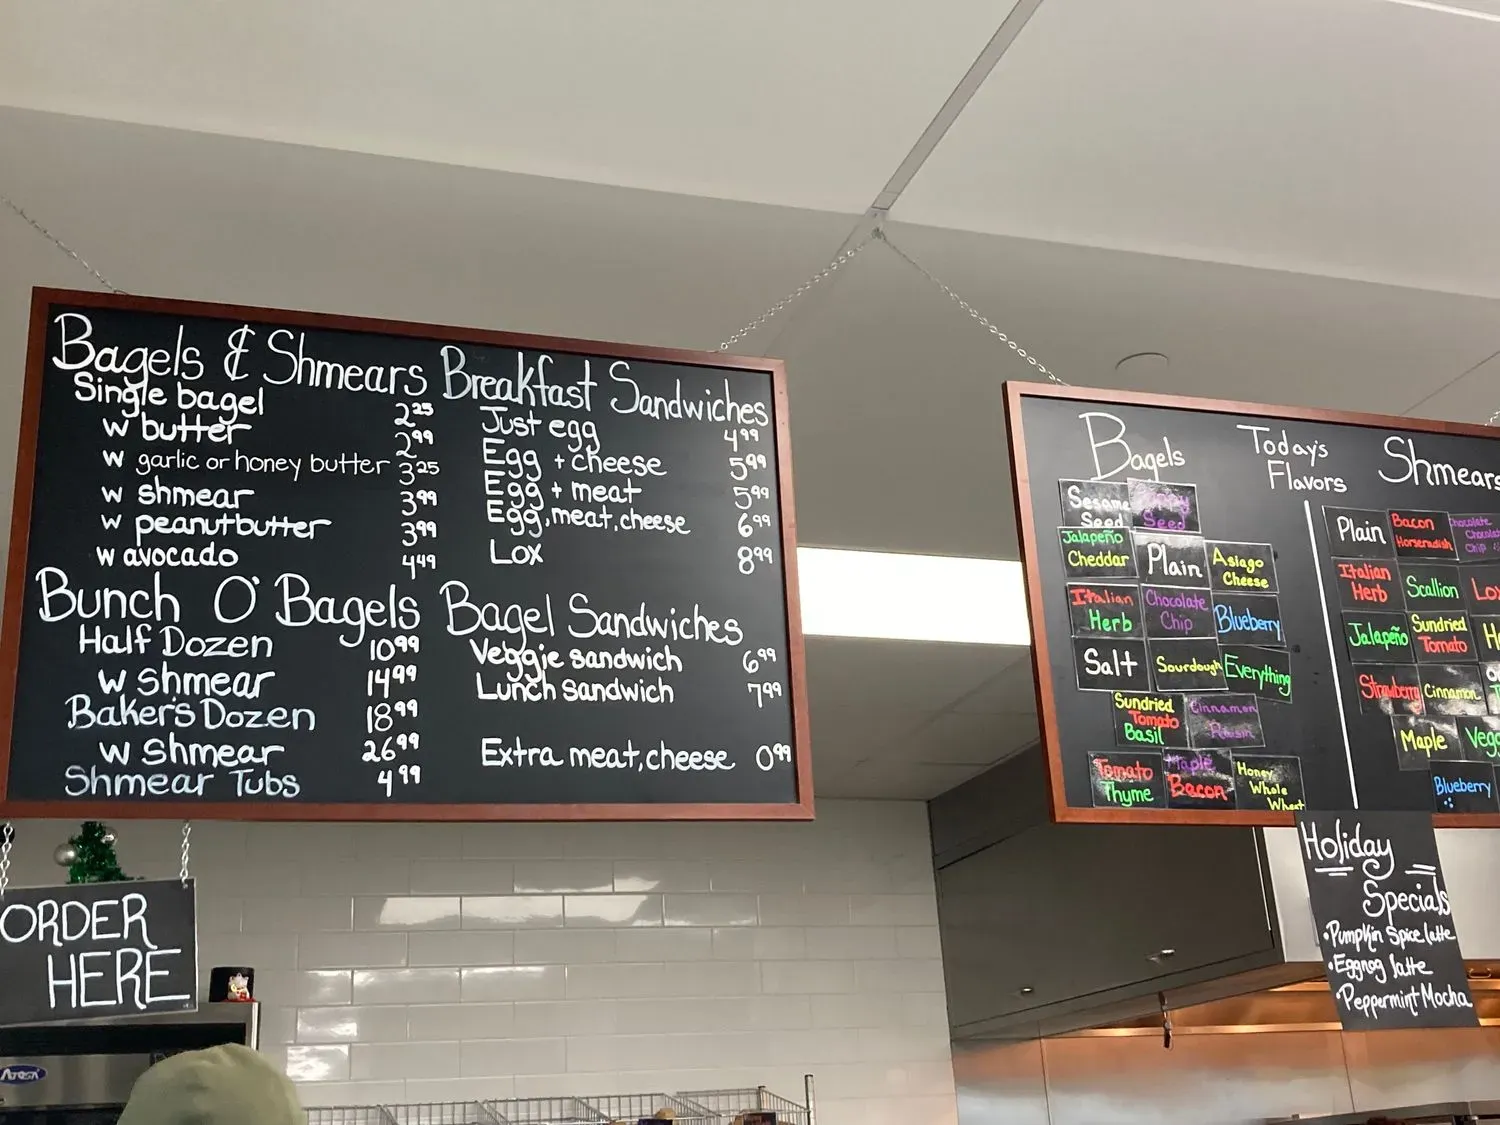 Bagels & Shmears
Single bagel 2.25
w butter 2.99
w garlic or honey butter 3.25
w shmear 3.99
w peanutbutter 3.99
w avocado 4.49
Bunch O' Bagels
Half Dozen 10.99
w shmear 14.99
Baker's Dozen 18.99
w shmear 26.99
Shmear Tubs 4.99
Breakfast Sandwiches
Just egg 4.99
Egg + cheese 5.99
Egg + meat 5.99
Egg, meat, cheese 6.99
Lox 8.99
Bagel Sandwiches
Veggie sandwich 6.99
Lunch sandwich 7.99
Extra meat, cheese 0.99
ORDER
HERE
Atosa
Today's
Flavors
Bagels
Sesame
Seed
Poppy
Seed
Jalapeño
Cheddar
Plain
Asiago
Cheese
Italian
Herb
Chocolate
Chip
Blueberry
Salt
Sourdough
Everything
Sundried
Tomato
Basil
Cinnamon
Raisin
Tomato
Thyme
Maple
Bacon
Honey
Whole
Wheat
Shmears
Plain
Bacon
Horseradish
Chocolate
Chocolate
Chip
Italian
Herb
Scallion
Lox
Jalapeño
Sundried
Tomato
Strawberry
Cinnamon
Maple
Vegg
Blueberry
Holiday
Specials
•Pumpkin Spice latte
•Eggnog latte
•Peppermint Mocha